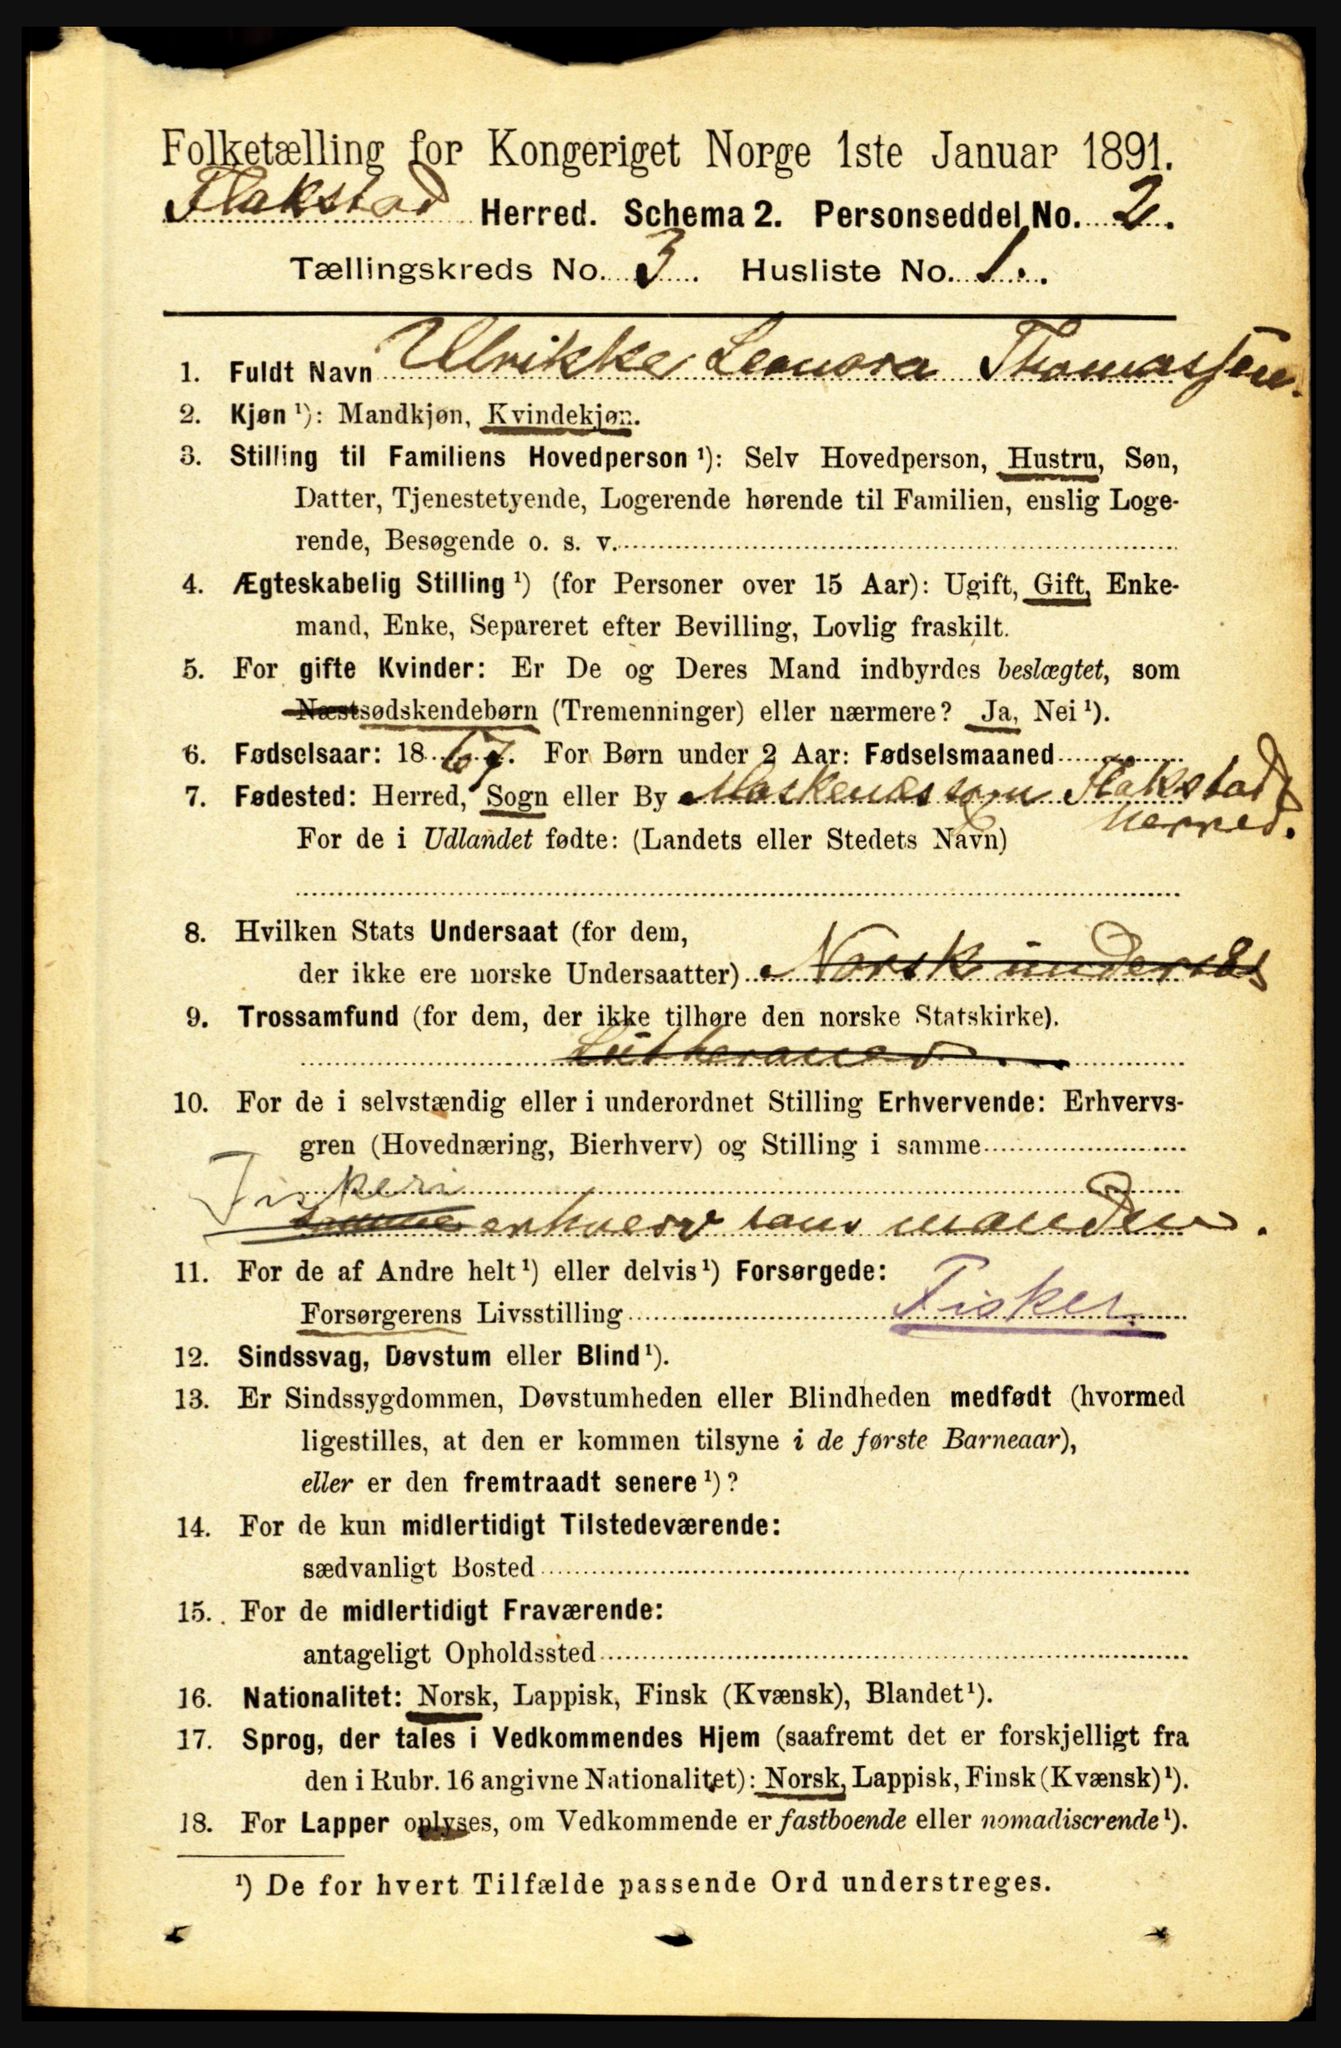 Folketælling for Kongeriget Norge 1ste Januar 1891.
Flakstad Herred. Schema 2. Personseddel No. 2.
Tællingskreds No. 3. Husliste No. 1.
1. Fuldt Navn Ulrikke Leonora Thomassen.
2. Kjøn ¹): Mandkjøn, Kvindekjøn.
3. Stilling til Familiens Hovedperson ¹): Selv Hovedperson, Hustru, Søn,
Datter, Tjenestetyende, Logerende hørende til Familien, enslig Loge-
rende, Besøgende o. s. v.
4. Ægteskabelig Stilling ¹) (for Personer over 15 Aar): Ugift, Gift, Enke-
mand, Enke, Separeret efter Bevilling, Lovlig fraskilt.
5. For gifte Kvinder: Er De og Deres Mand indbyrdes beslægtet, som
Næstsødskendebørn (Tremenninger) eller nærmere? Ja, Nei ¹).
6. Fødselsaar: 1867. For Børn under 2 Aar: Fødselsmaaned
7. Fødested: Herred, Sogn eller By Moskenæs sogn Flakstad
Herred.
For de i Udlandet fødte: (Landets eller Stedets Navn)
8. Hvilken Stats Undersaat (for dem,
der ikke ere norske Undersaatter) Norsk undersås
9. Trossamfund (for dem, der ikke tilhøre den norske Statskirke).
Lutheraner
10. For de i selvstændig eller i underordnet Stilling Erhvervende: Erhvervs-
gren (Hovednæring, Bierhverv) og Stilling i samme
Fiskeri
samme erhverv som manden.
11. For de af Andre helt ¹) eller delvis ¹) Forsørgede:
Forsørgerens Livsstilling Fisker
12. Sindssvag, Døvstum eller Blind ¹).
13. Er Sindssygdommen, Døvstumheden eller Blindheden medfødt (hvormed
ligestilles, at den er kommen tilsyne i de første Barneaar),
eller er den fremtraadt senere ¹)?
14. For de kun midlertidigt Tilstedeværende:
sædvanligt Bosted
15. For de midlertidigt Fraværende:
antageligt Opholdssted
16. Nationalitet: Norsk, Lappisk, Finsk (Kvænsk), Blandet ¹).
17. Sprog, der tales i Vedkommendes Hjem (saafremt det er forskjelligt fra
den i Rubr. 16 angivne Nationalitet): Norsk, Lappisk, Finsk (Kvænsk) ¹).
18. For Lapper oplyses, om Vedkommende er fastboende eller nomadiserende ¹).
¹) De for hvert Tilfælde passende Ord understreges.